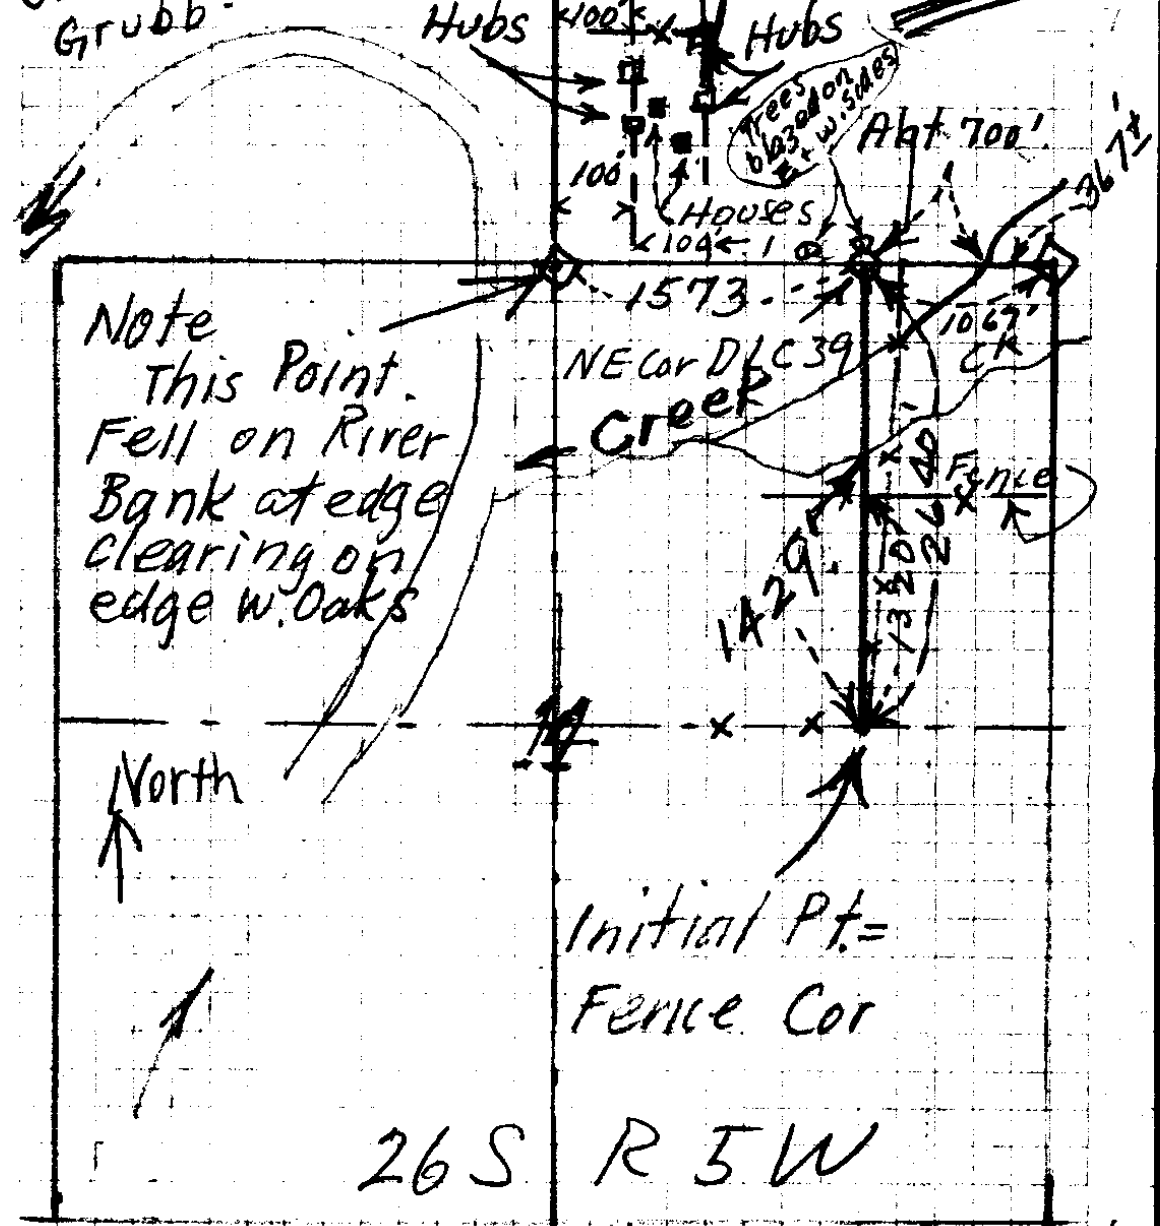 Grubb.
Hubs
100'
Hubs
Trees
blazed on
E + W. Sides
Abt 700'.
367±'
100'
Houses
104'
1573
1067'
Note
This Point.
Fell on River
Bank at edge
clearing on
edge W. Oaks
NE Cor DLC 39
CK
Creek
Fence
2640'
1320'
1429'
14
North
Initial Pt. =
Fence Cor
26 S R 5 W